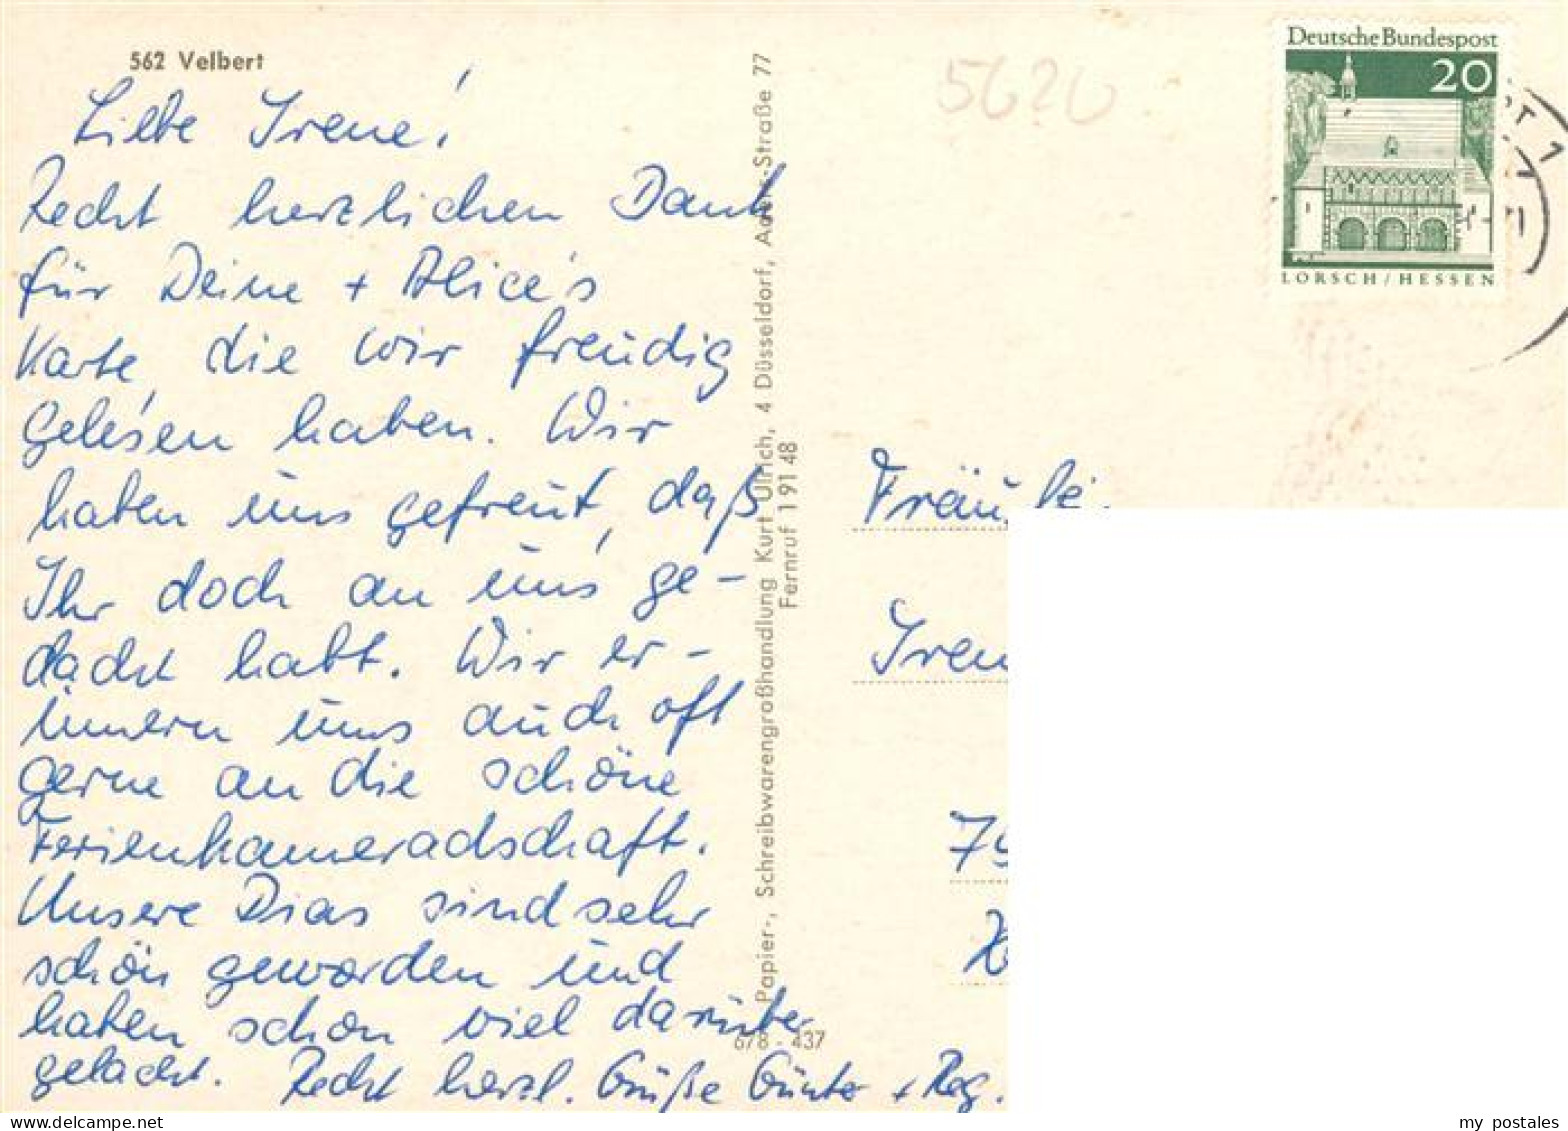 562 Velbert
Liebe Irene!
Recht herzlichen Dank
für Deine + Alice's
Karte, die wir freudig
gelesen haben. Wir
haben uns gefreut, daß
Ihr doch an uns ge-
dacht habt. Wir er-
innern uns auch oft
gerne an die schöne
Ferienkameradschaft.
Unsere Dias sind sehr
schön geworden und
haben schon viel darüber
gelacht. Recht herzl. Grüße Günter + Reg.
Papier-, Schreibwarengroßhandlung Kurt Ulrich, 4 Düsseldorf, Straße 77
Fernruf 1 91 48
678 - 437
5620
Deutsche Bundespost
20
LORSCH / HESSEN
71
Fräule
Iren
79
my postales